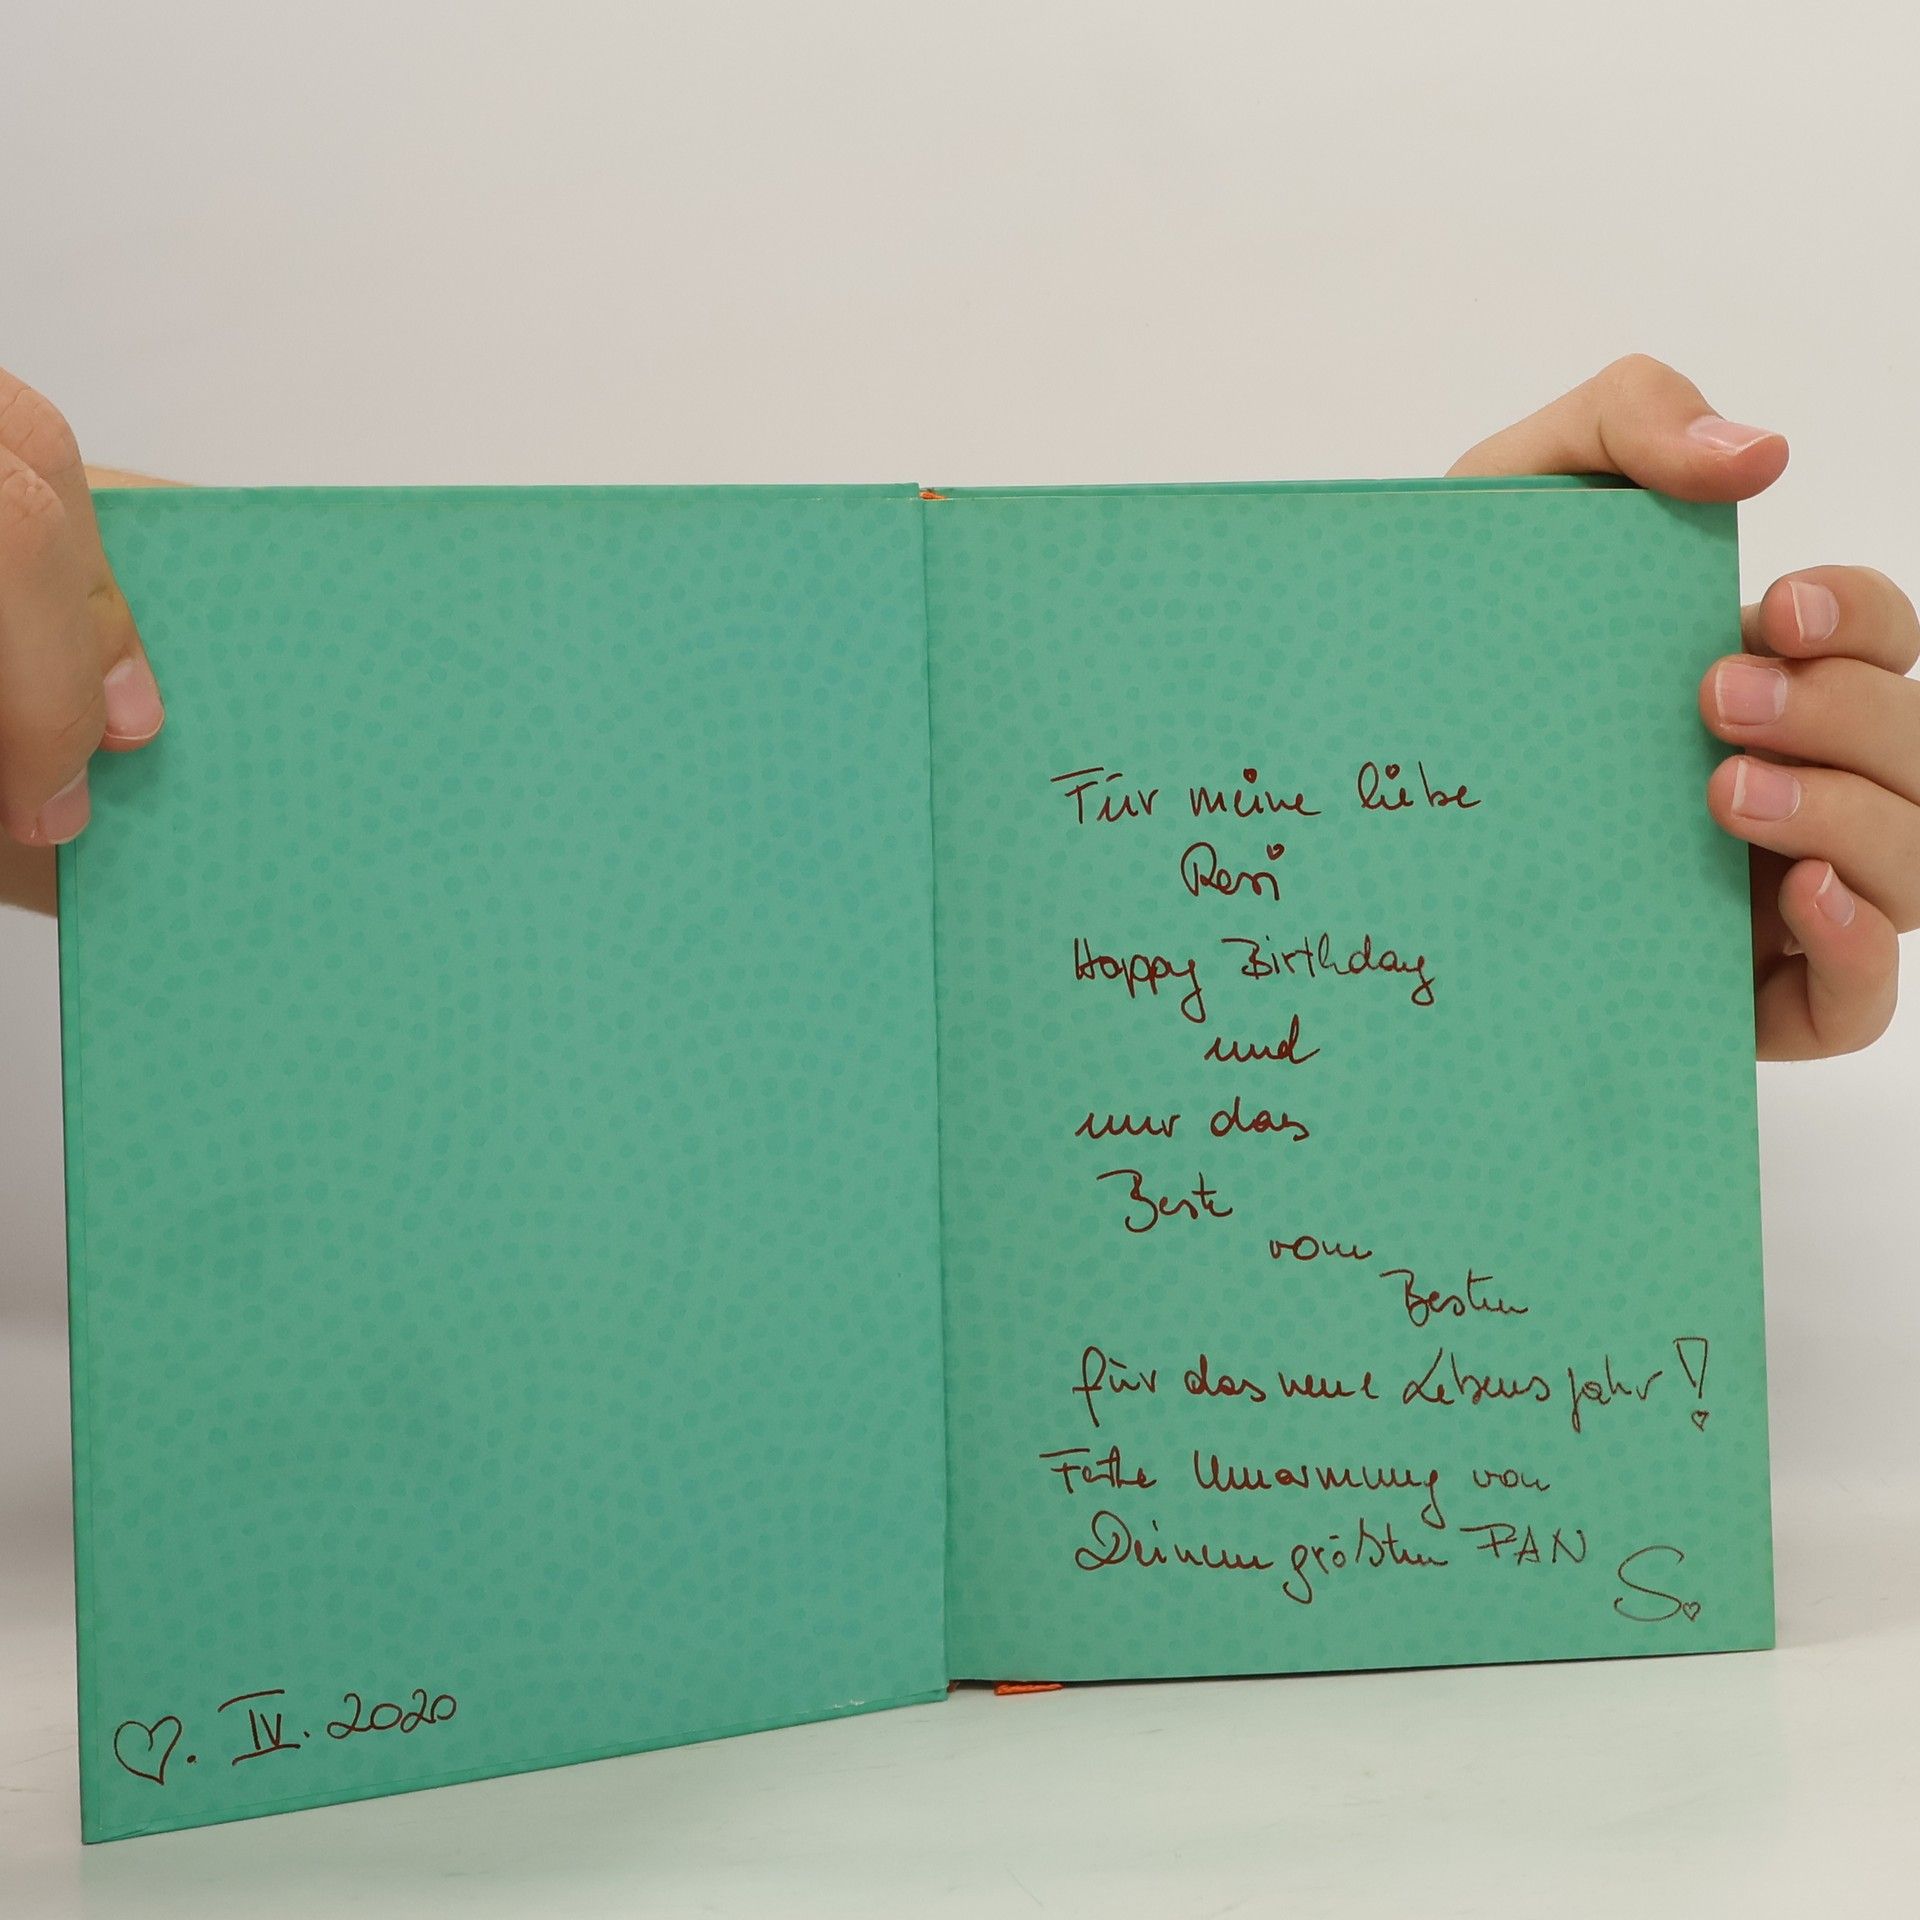 ♡. IV. 2020
Für meine liebe
Resi
Happy Birthday
und
nur das
Beste
vom
Besten
für das neue Lebensjahr!
Feste Umarmung von
Deinem größten FAN
S.